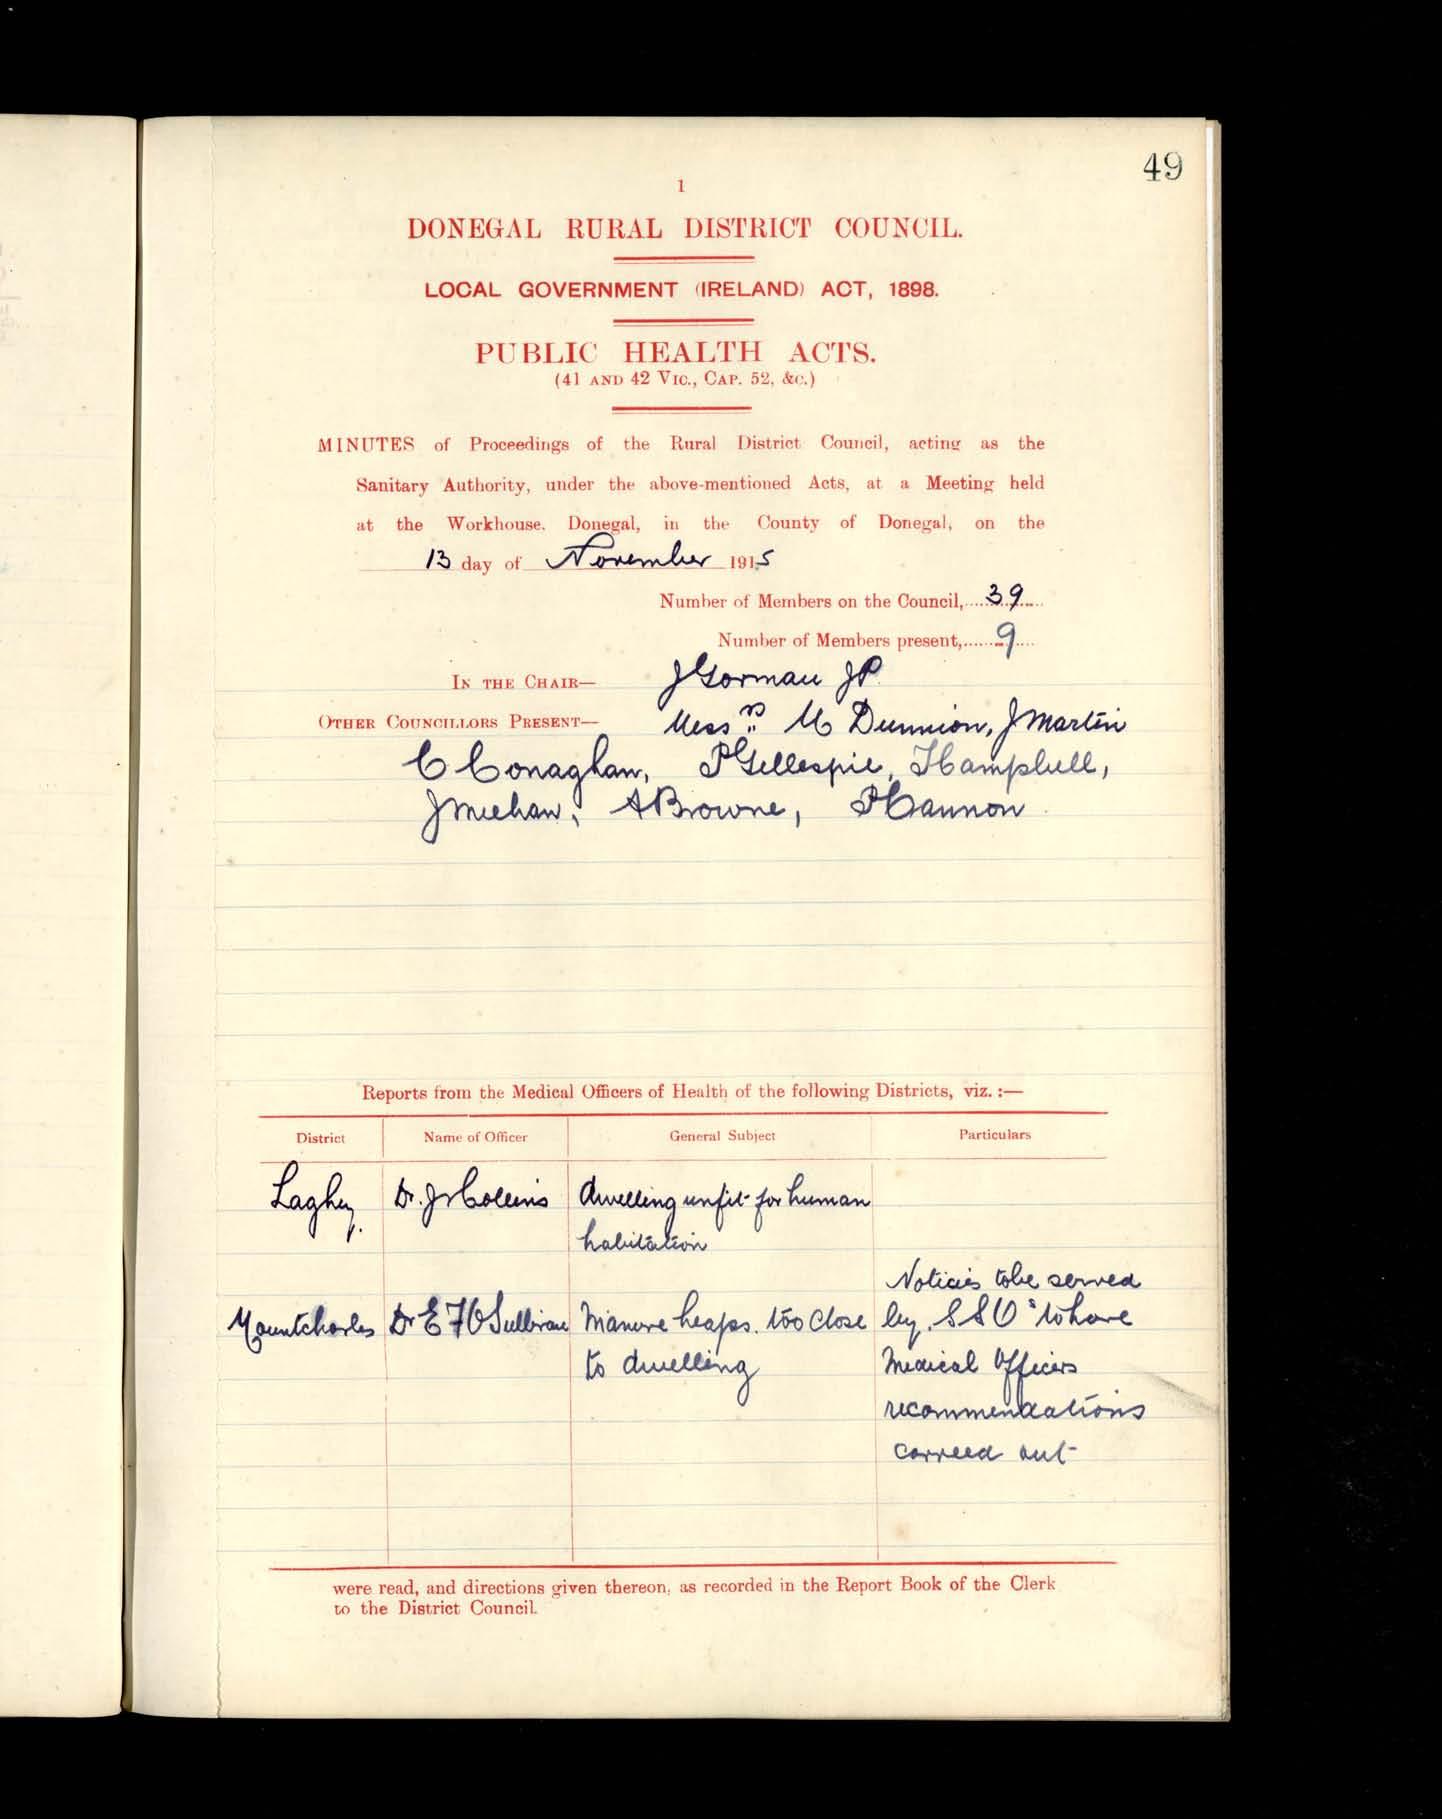 49
1
DONEGAL RURAL DISTRICT COUNCIL.
LOCAL GOVERNMENT (IRELAND) ACT, 1898.
PUBLIC HEALTH ACTS.
(41 AND 42 VIC., CAP. 52, &c.)
MINUTES of Proceedings of the Rural District Council, acting as the
Sanitary Authority, under the above-mentioned Acts, at a Meeting held
at the Workhouse, Donegal, in the County of Donegal, on the
13 day of November 1915
Number of Members on the Council, 39
Number of Members present, 9
IN THE CHAIR— J Gorman JP
OTHER COUNCILLORS PRESENT— Messrs M Dunnion, J Martin
C Conaghan, P Gillespie, J Campbell,
J Meehan, A Browne, P Cannon
Reports from the Medical Officers of Health of the following Districts, viz. :—
District Name of Officer General Subject Particulars
Laghey. Dr. J Collins dwelling unfit for human
habitation
Notices to be served
Mountcharles Dr E F O Sullivan Manure heaps. too close by. S S O s to have
to dwelling Medical Officers
recommendations
carried out
were read, and directions given thereon, as recorded in the Report Book of the Clerk
to the District Council.